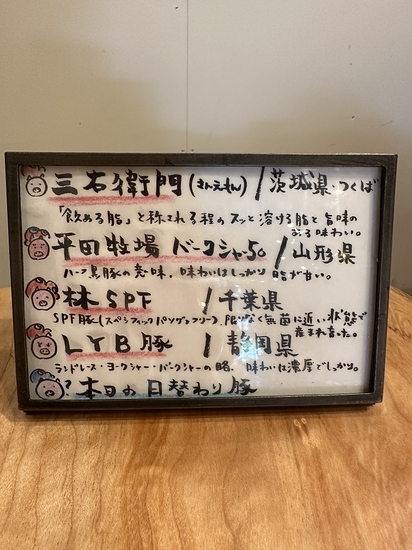 三右衛門(さんえもん)/茨城県・つくば
「飲める脂」と称される程のスッと溶ける脂と旨味の
ある味わい。
平田牧場 バークシャ50/山形県
ハーフ黒豚の意味。味わいはしっかり脂が甘い。
林SPF/千葉県
SPF豚(スペシフィックパソジェンフリー)。限りなく無菌に近い状態で
産まれ育った。
LYB豚/静岡県
ランドレース・ヨークシャー・バークシャーの略。味わいは濃厚でしっかり。
本日の日替わり豚